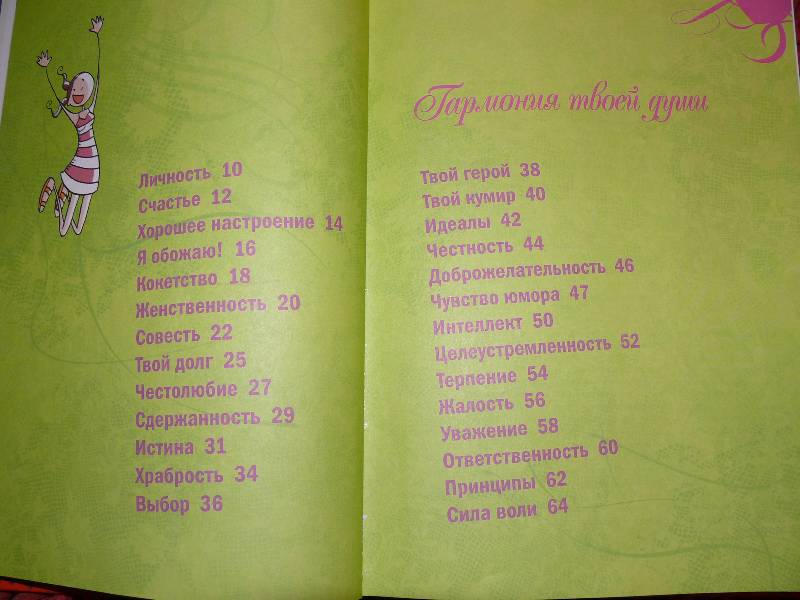 Личность 10
Счастье 12
Хорошее настроение 14
Я обожаю! 16
Кокетство 18
Женственность 20
Совесть 22
Твой долг 25
Честолюбие 27
Сдержанность 29
Истина 31
Храбрость 34
Выбор 36
Гармония твоей души
Твой герой 38
Твой кумир 40
Идеалы 42
Честность 44
Доброжелательность 46
Чувство юмора 47
Интеллект 50
Целеустремленность 52
Терпение 54
Жалость 56
Уважение 58
Ответственность 60
Принципы 62
Сила воли 64